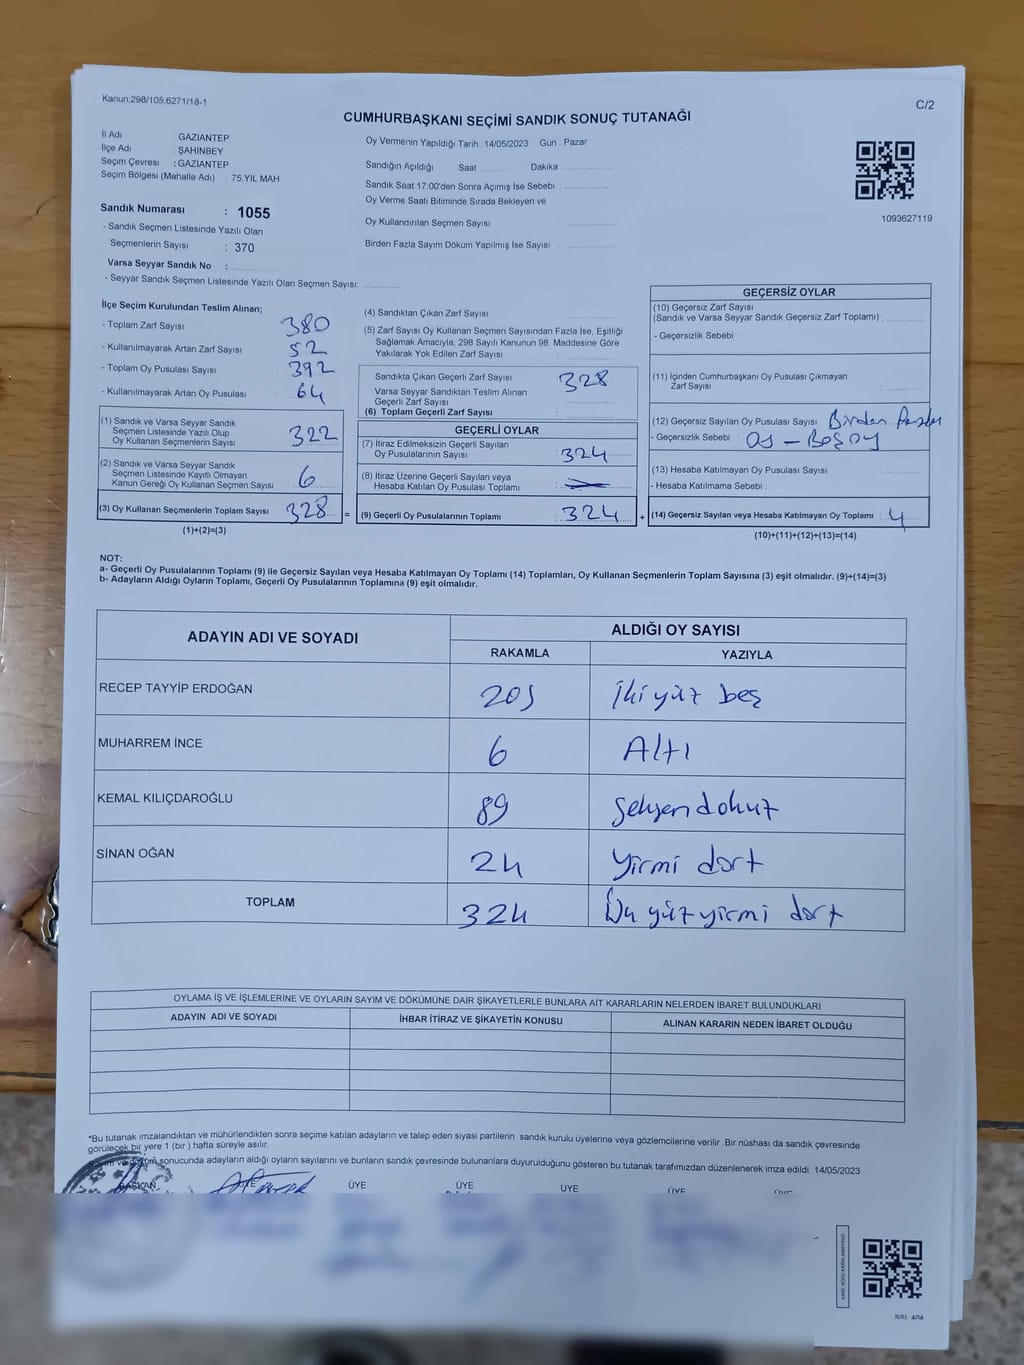 Kanun:298/105,6271/18-1
C/2
CUMHURBAŞKANI SEÇİMİ SANDIK SONUÇ TUTANAĞI
İl Adı : GAZIANTEP
İlçe Adı : ŞAHINBEY
Seçim Çevresi : GAZIANTEP
Seçim Bölgesi (Mahalle Adı) : 75.YIL MAH
Sandık Numarası : 1055
- Sandık Seçmen Listesinde Yazılı Olan
Seçmenlerin Sayısı : 370
Varsa Seyyar Sandık No :
- Seyyar Sandık Seçmen Listesinde Yazılı Olan Seçmen Sayısı:
Oy Vermenin Yapıldığı Tarih :14/05/2023 Gün : Pazar
Sandığın Açıldığı Saat : Dakika :
Sandık Saat 17:00'den Sonra Açımış İse Sebebi :
Oy Verme Saati Bitiminde Sırada Bekleyen ve
Oy Kullandırılan Seçmen Sayısı :
Birden Fazla Sayım Döküm Yapılmış İse Sayısı :
1093627119
İlçe Seçim Kurulundan Teslim Alınan;
- Toplam Zarf Sayısı : 380
- Kullanılmayarak Artan Zarf Sayısı : 52
- Toplam Oy Pusulası Sayısı : 392
- Kullanılmayarak Artan Oy Pusulası : 64
(1) Sandık ve Varsa Seyyar Sandık
Seçmen Listesinde Yazılı Olup
Oy Kullanan Seçmenlerin Sayısı : 322
(2) Sandık ve Varsa Seyyar Sandık
Seçmen Listesinde Kayıtlı Olmayan
Kanun Gereği Oy Kullanan Seçmen Sayısı : 6
(3) Oy Kullanan Seçmenlerin Toplam Sayısı : 328 =
(1)+(2)=(3)
(4) Sandıktan Çıkan Zarf Sayısı :
(5) Zarf Sayısı Oy Kullanan Seçmen Sayısından Fazla İse, Eşitliği
Sağlamak Amacıyla, 298 Sayılı Kanunun 98. Maddesine Göre
Yakılarak Yok Edilen Zarf Sayısı :
Sandıkta Çıkan Geçerli Zarf Sayısı : 328
Varsa Seyyar Sandıktan Teslim Alınan
Geçerli Zarf Sayısı :
(6) Toplam Geçerli Zarf Sayısı :
GEÇERLİ OYLAR
(7) İtiraz Edilmeksizin Geçerli Sayılan
Oy Pusulalarının Sayısı : 324
(8) İtiraz Üzerine Geçerli Sayılan veya
Hesaba Katılan Oy Pusulası Toplamı :
(9) Geçerli Oy Pusulalarının Toplamı : 324 +
GEÇERSİZ OYLAR
(10) Geçersiz Zarf Sayısı
(Sandık ve Varsa Seyyar Sandık Geçersiz Zarf Toplamı) :
- Geçersizlik Sebebi :
(11) İçinden Cumhurbaşkanı Oy Pusulası Çıkmayan
Zarf Sayısı :
(12) Geçersiz Sayılan Oy Pusulası Sayısı : Birden Fazla
- Geçersizlik Sebebi : Oy - Boş oy
(13) Hesaba Katılmayan Oy Pusulası Sayısı :
- Hesaba Katılmama Sebebi :
(14) Geçersiz Sayılan veya Hesaba Katılmayan Oy Toplamı : 4
(10)+(11)+(12)+(13)=(14)
NOT:
a- Geçerli Oy Pusulalarının Toplamı (9) ile Geçersiz Sayılan veya Hesaba Katılmayan Oy Toplamı (14) Toplamları, Oy Kullanan Seçmenlerin Toplam Sayısına (3) eşit olmalıdır. (9)+(14)=(3)
b- Adayların Aldığı Oyların Toplamı, Geçerli Oy Pusulalarının Toplamına (9) eşit olmalıdır.
ADAYIN ADI VE SOYADI
ALDIĞI OY SAYISI
RAKAMLA YAZIYLA
RECEP TAYYİP ERDOĞAN 205 İkiyüz beş
MUHARREM İNCE 6 Altı
KEMAL KILIÇDAROĞLU 89 Seksen dokuz
SİNAN OĞAN 24 Yirmi dört
TOPLAM 324 Üç yüz yirmi dört
OYLAMA İŞ VE İŞLEMLERİNE VE OYLARIN SAYIM VE DÖKÜMÜNE DAİR ŞİKAYETLERLE BUNLARA AİT KARARLARIN NELERDEN İBARET BULUNDUKLARI
ADAYIN ADI VE SOYADI İHBAR İTİRAZ VE ŞİKAYETİN KONUSU ALINAN KARARIN NEDEN İBARET OLDUĞU
*Bu tutanak imzalandıktan ve mühürlendikten sonra seçime katılan adayların ve talep eden siyasi partilerin sandık kurulu üyelerine veya gözlemcilerine verilir .Bir nüshası da sandık çevresinde
görülecek bir yere 1 (bir ) hafta süreyle asılır.
Sayım ve döküm sonucunda adayların aldığı oyların sayılarını ve bunların sandık çevresinde bulunanlara duyurulduğunu gösteren bu tutanak tarafımızdan düzenlenerek imza edildi 14/05/2023
BAŞKAN ÜYE ÜYE ÜYE ÜYE ÜYE ÜYE